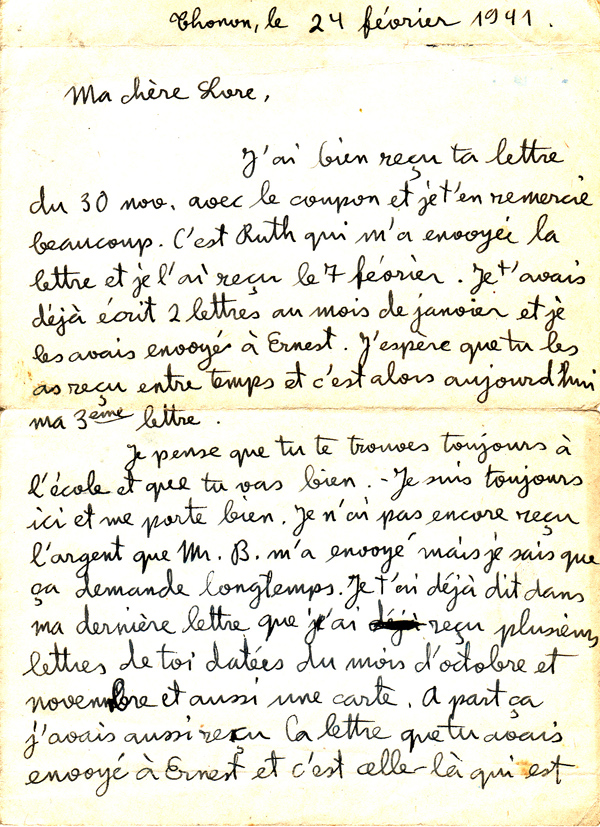 Thonon, le 24 février 1941.
Ma chère Lore,
J'ai bien reçu ta lettre
du 30 nov. avec le coupon et je t'en remercie
beaucoup. C'est Ruth qui m'a envoyée la
lettre et je l'ai reçu le 7 février. Je t'avais
déjà écrit 2 lettres au mois de janvier et je
les avais envoyé à Ernest. J'espère que tu les
as reçu entre temps et c'est alors aujourd'hui
ma 3ème lettre.
Je pense que tu te trouves toujours à
l'école et que tu vas bien. - Je suis toujours
ici et me porte bien. Je n'ai pas encore reçu
l'argent que Mr. B. m'a envoyé mais je sais que
ça demande longtemps. Je t'ai déjà dit dans
ma dernière lettre que j'ai déjà reçu plusieurs
lettres de toi datées du mois d'octobre et
novembre et aussi une carte. A part ça
j'avais aussi reçu la lettre que tu avais
envoyé à Ernest et c'est celle-là qui est